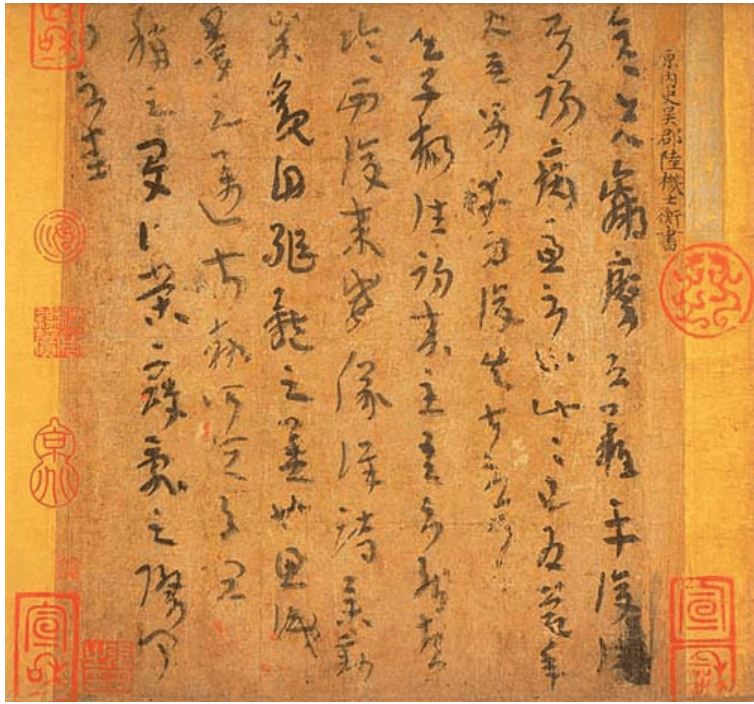 原內史吳郡陸機士衡書
彥先羸瘵恐難平復往
屬初病慮不止此此已為慶承
使唯男幸為復失前憂耳
吳子楊往初來主吾不能盡
臨西復來威儀詳跱舉動
成觀自軀體之美也思識
之邁前執所恒有宜
稱之夏伯榮寇亂之際聞
問不悉
宣龢
宣龢